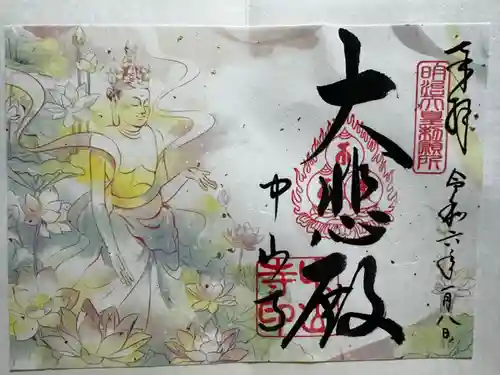 奉拝
明治天皇勅願所
令和六年一月八日
大悲殿
中山寺
中山寺印